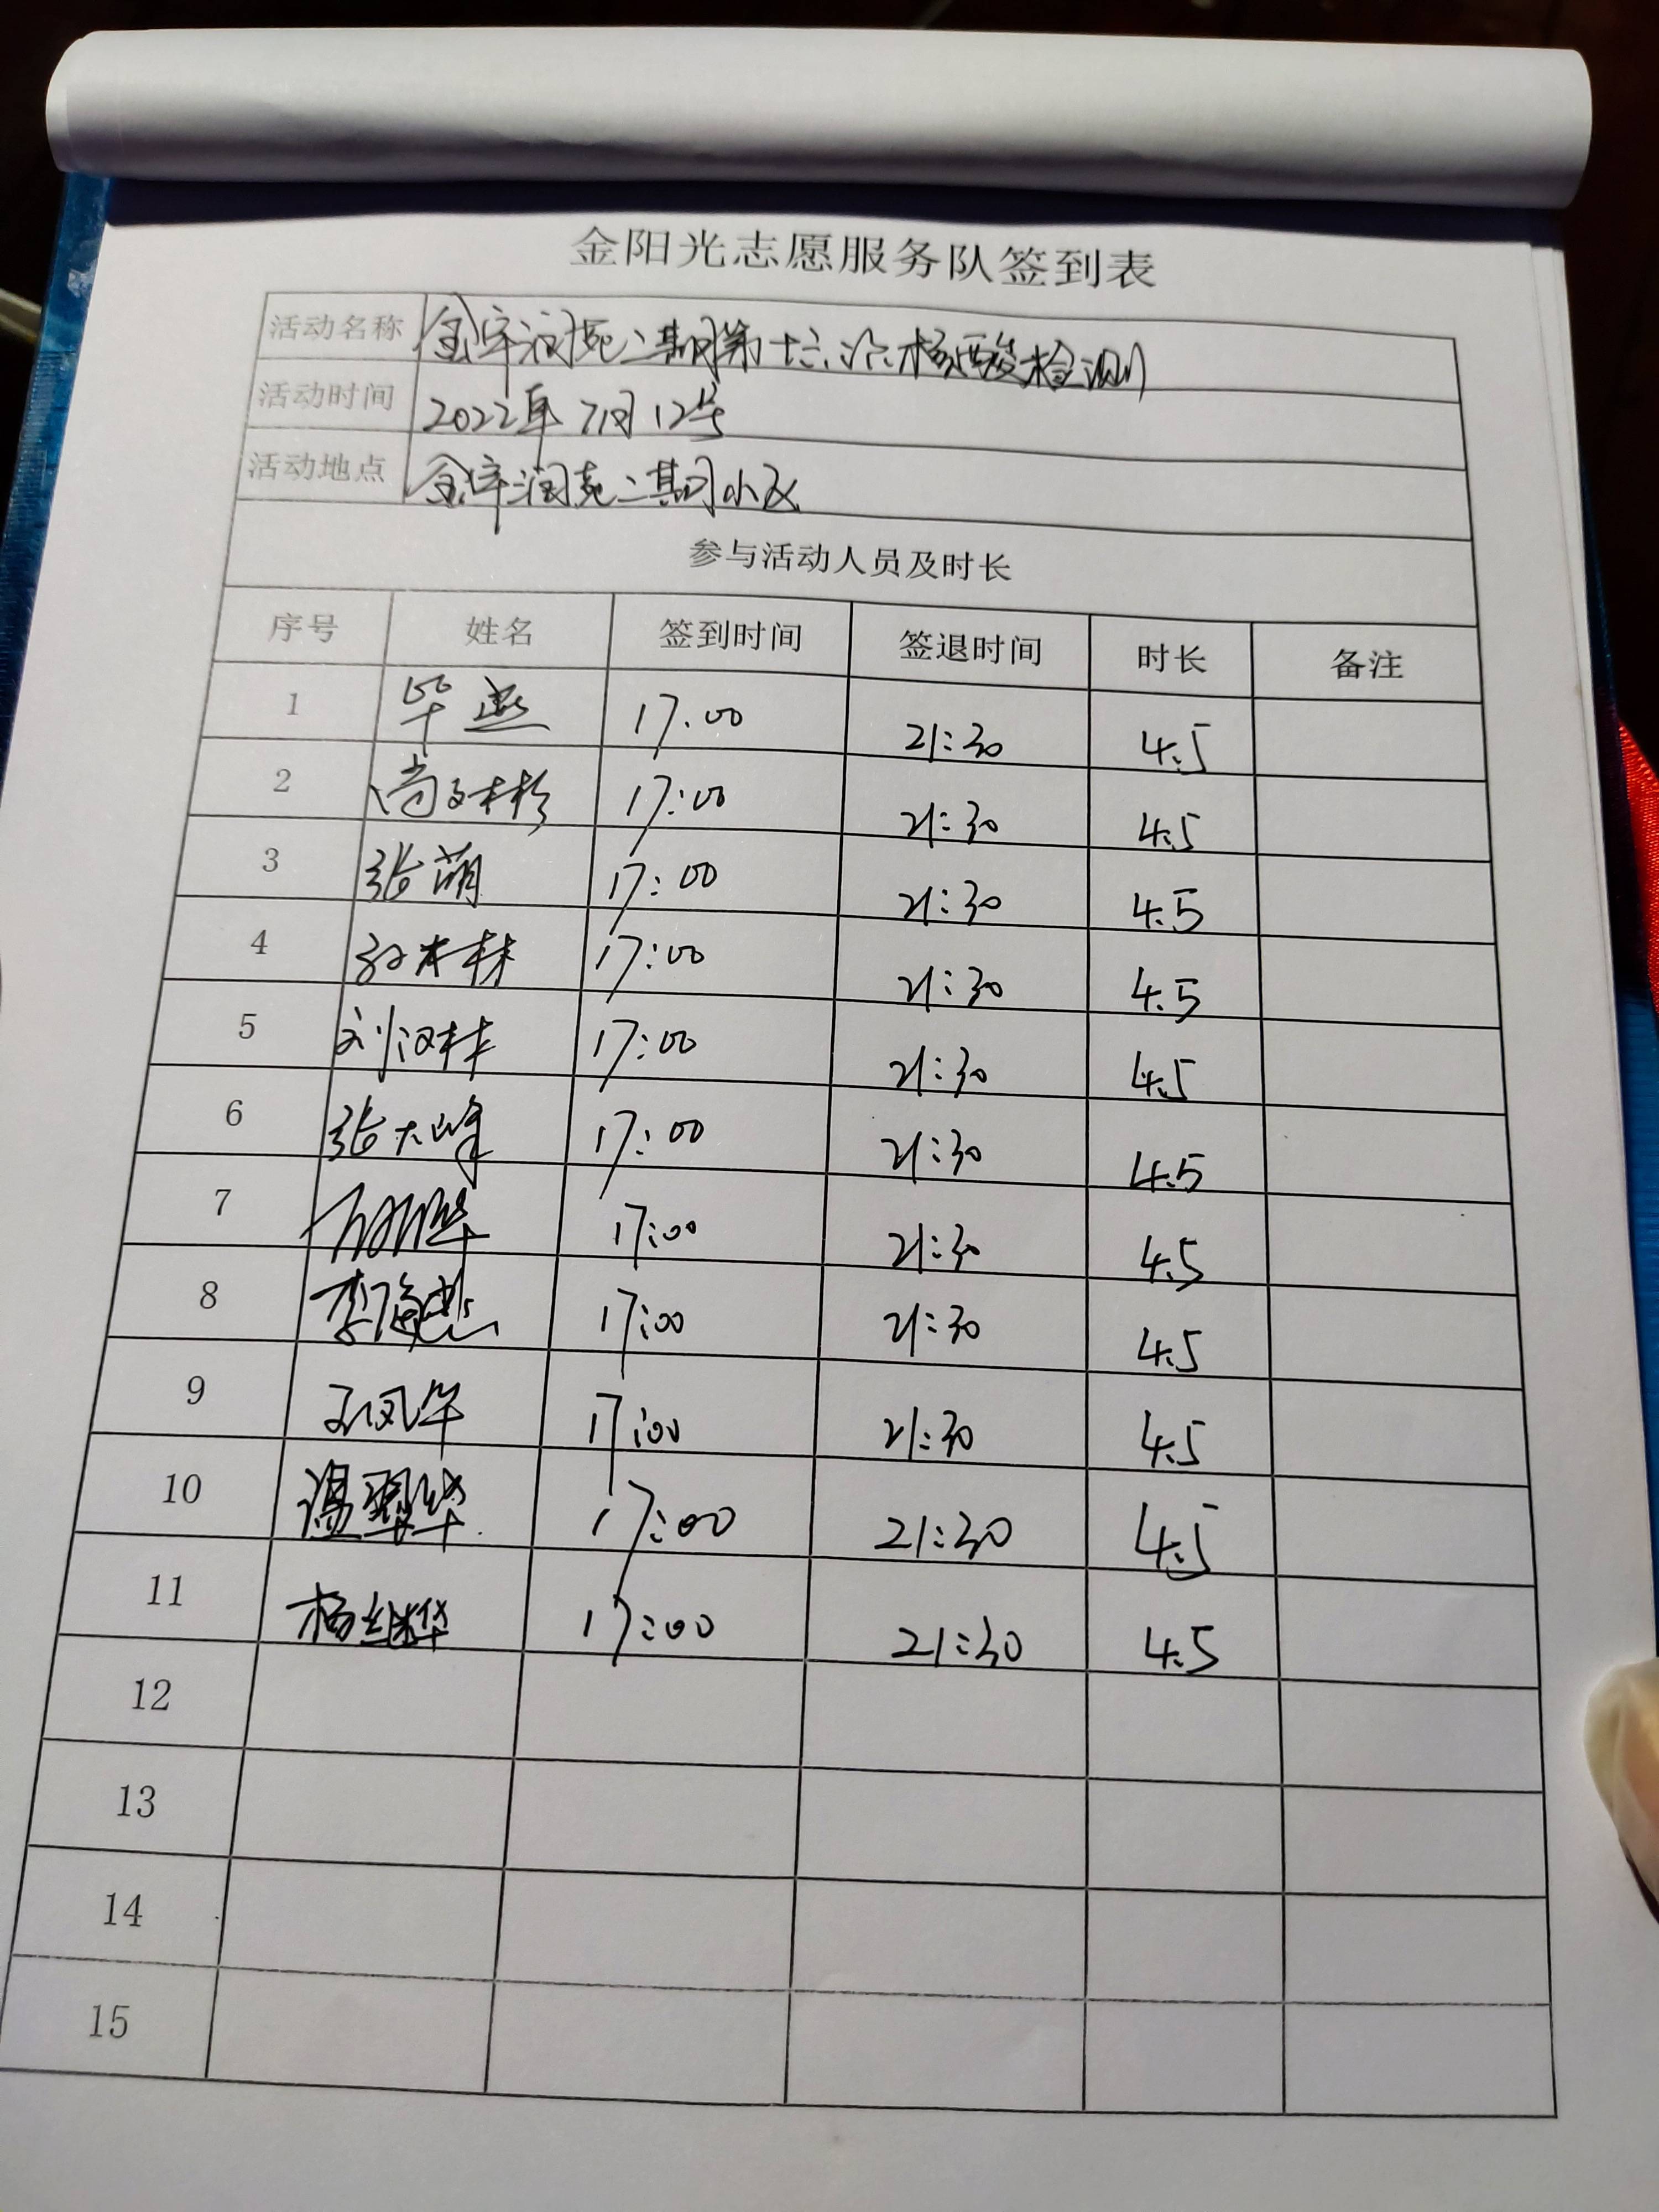 金阳光志愿服务队签到表
活动名称 金岸润苑二期第十六次核酸检测
活动时间 2022年7月12号
活动地点 金岸润苑二期小区
参与活动人员及时长
序号 姓名 签到时间 签退时间 时长 备注
1 毕燕 17:00 21:30 4.5
2 17:00 21:30 4.5
3 张萌 17:00 21:30 4.5
4 17:00 21:30 4.5
5 刘汉林 17:00 21:30 4.5
6 张大峰 17:00 21:30 4.5
7 17:00 21:30 4.5
8 李海燕 17:00 21:30 4.5
9 17:00 21:30 4.5
10 温翠华 17:00 21:30 4.5
11 杨继华 17:00 21:30 4.5
12
13
14
15